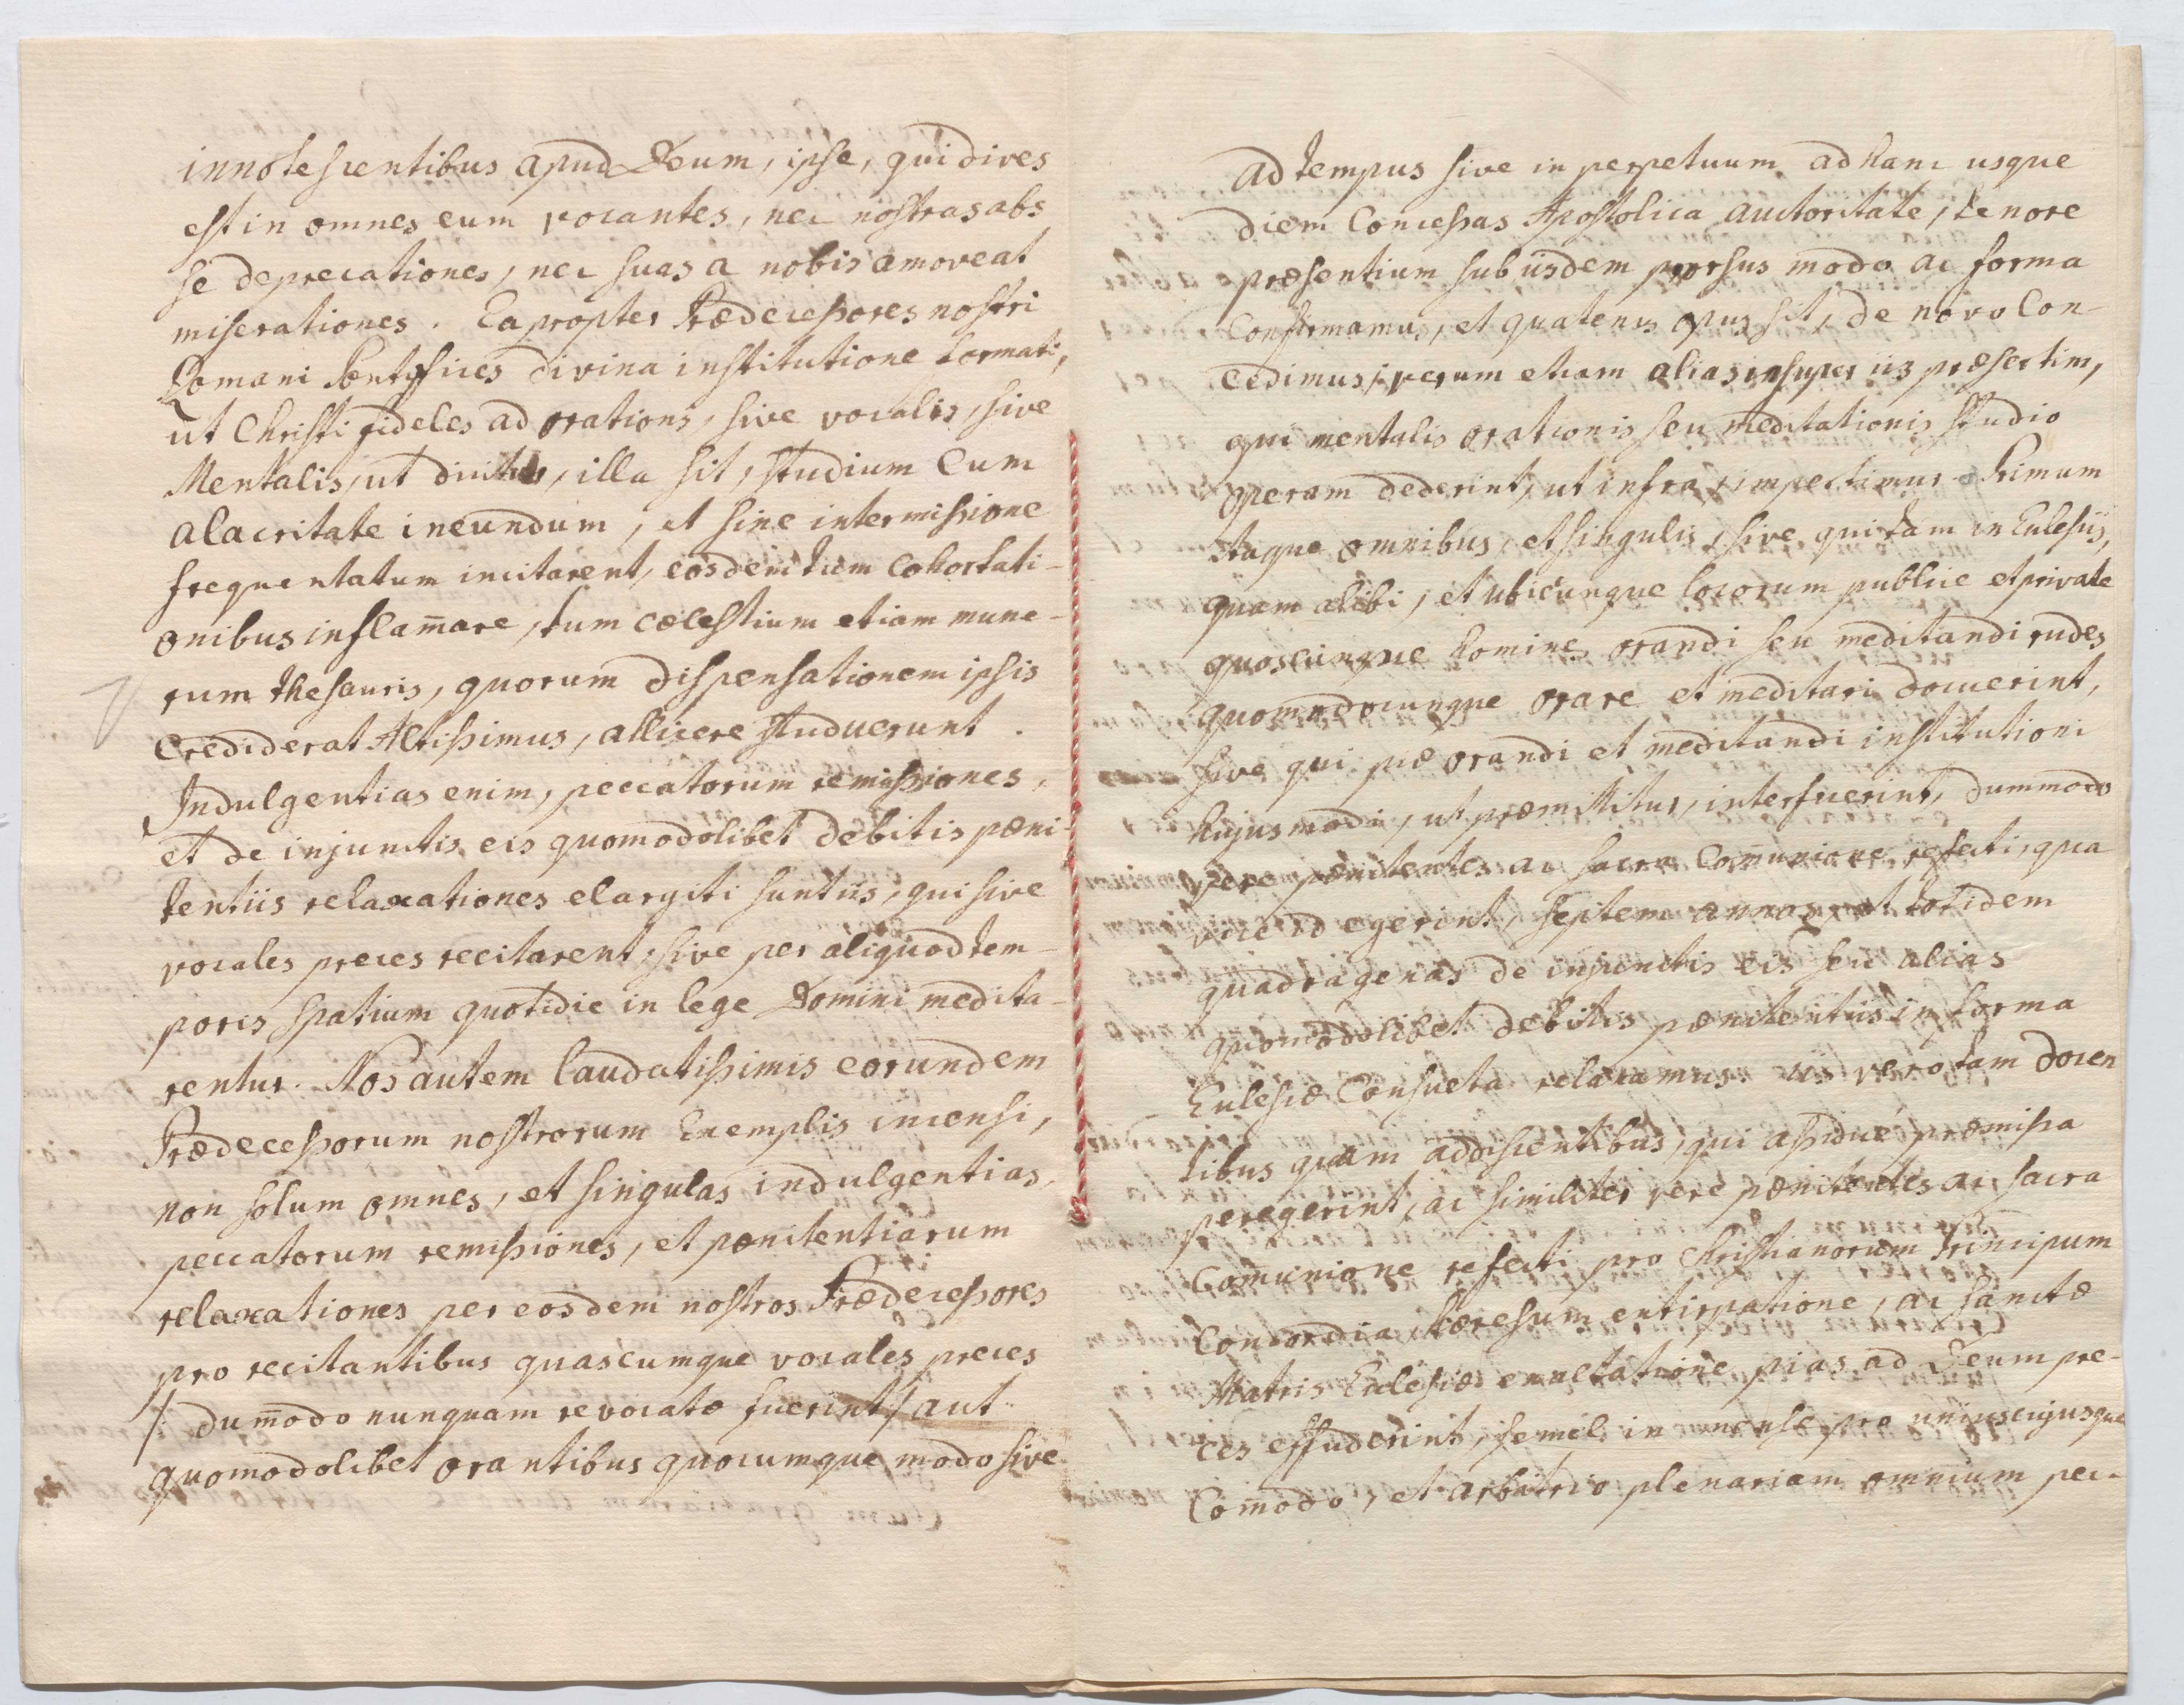 innotescentibus apud Deum, ipse, qui dives
est in omnes eum vocantes, nec nostras abs
se deprecationes, nec suas a nobis amoveat
miserationes. Ea propter Prædecessores nostri
Romani Pontifices divina institutione formati,
ut Christi fideles ad orationis, sive vocalis, sive
Mentalis, ut dicitur, illa sit, studium cum
alacritate ineundum, et sine intermissione
frequentatum incitarent, eosdem tum cohortati-
onibus inflam̄are, tum cœlestium etiam mune-
rum thesauris, quorum dispensationem ipsis
crediderat Altissimus, allicere studuerunt.
Indulgentias enim, peccatorum remissiones,
et de injunctis eis quomodolibet debitis pœni-
tentiis relaxationes elargiti sunt iis, qui sive
vocales preces recitarent, sive per aliquod tem-
poris spatium quotidie in lege Domini medita-
rentur. Nos autem laudatissimis eorundem
Prædecessorum nostrorum Exemplis incensi,
non solum omnes, et singulas indulgentias,
peccatorum remissiones, et pœnitentiarum
relaxationes per eosdem nostros Prædecessores
pro recitantibus quascumque vocales preces
/: dum̄odo nunquam revocatæ fuerint / aut
quomodolibet orantibus quocumque modo sive
ad tempus sive in perpetuum ad hanc usque
diem Concessas Apostolica auctoritate, tenore
præsentium sub iisdem prorsus modo ac forma
Confirmamus, et quatenus opus sit, de novo Con-
cedimus, verum etiam alias insuper iis præsertim,
qui mentalis orationis seu meditationis studio
operam dederint, ut infra, impertimur. Primum
itaque omnibus, et singulis, sive qui tam in Ecclesiis,
quam alibi, et ubicunque locorum publice et private
quoscunque homines orandi seu meditandi rudes
quomodocunque orare et meditari docuerint,
sive qui piæ orandi et meditandi institutioni
hujusmodi, ut præmittitur, interfuerint, dummodo
vere pœnitentes ac sacra Com̄unione refecti, qua
vice id egerint, septem annos, et totidem
quadragenas de injunctis eis seu alias
quomodolibet debitis pœnitentiis in forma
Ecclesiæ Consueta relaxamus. iis vero tam docen
tibus quam addiscentibus, qui assidue præmissa
peregerint, ac similiter vere pœnitentes ac sacra
Com̄unione refecti pro Christianorum Principum
Concordia, hæresum extirpatione, ac sanctæ
Matris Ecclesiæ exaltatione pias ad Deum pre-
ces effuderint, semel in mense pro uniuscujusque
Com̄odo, et arbitrio plenariam omnium pec-